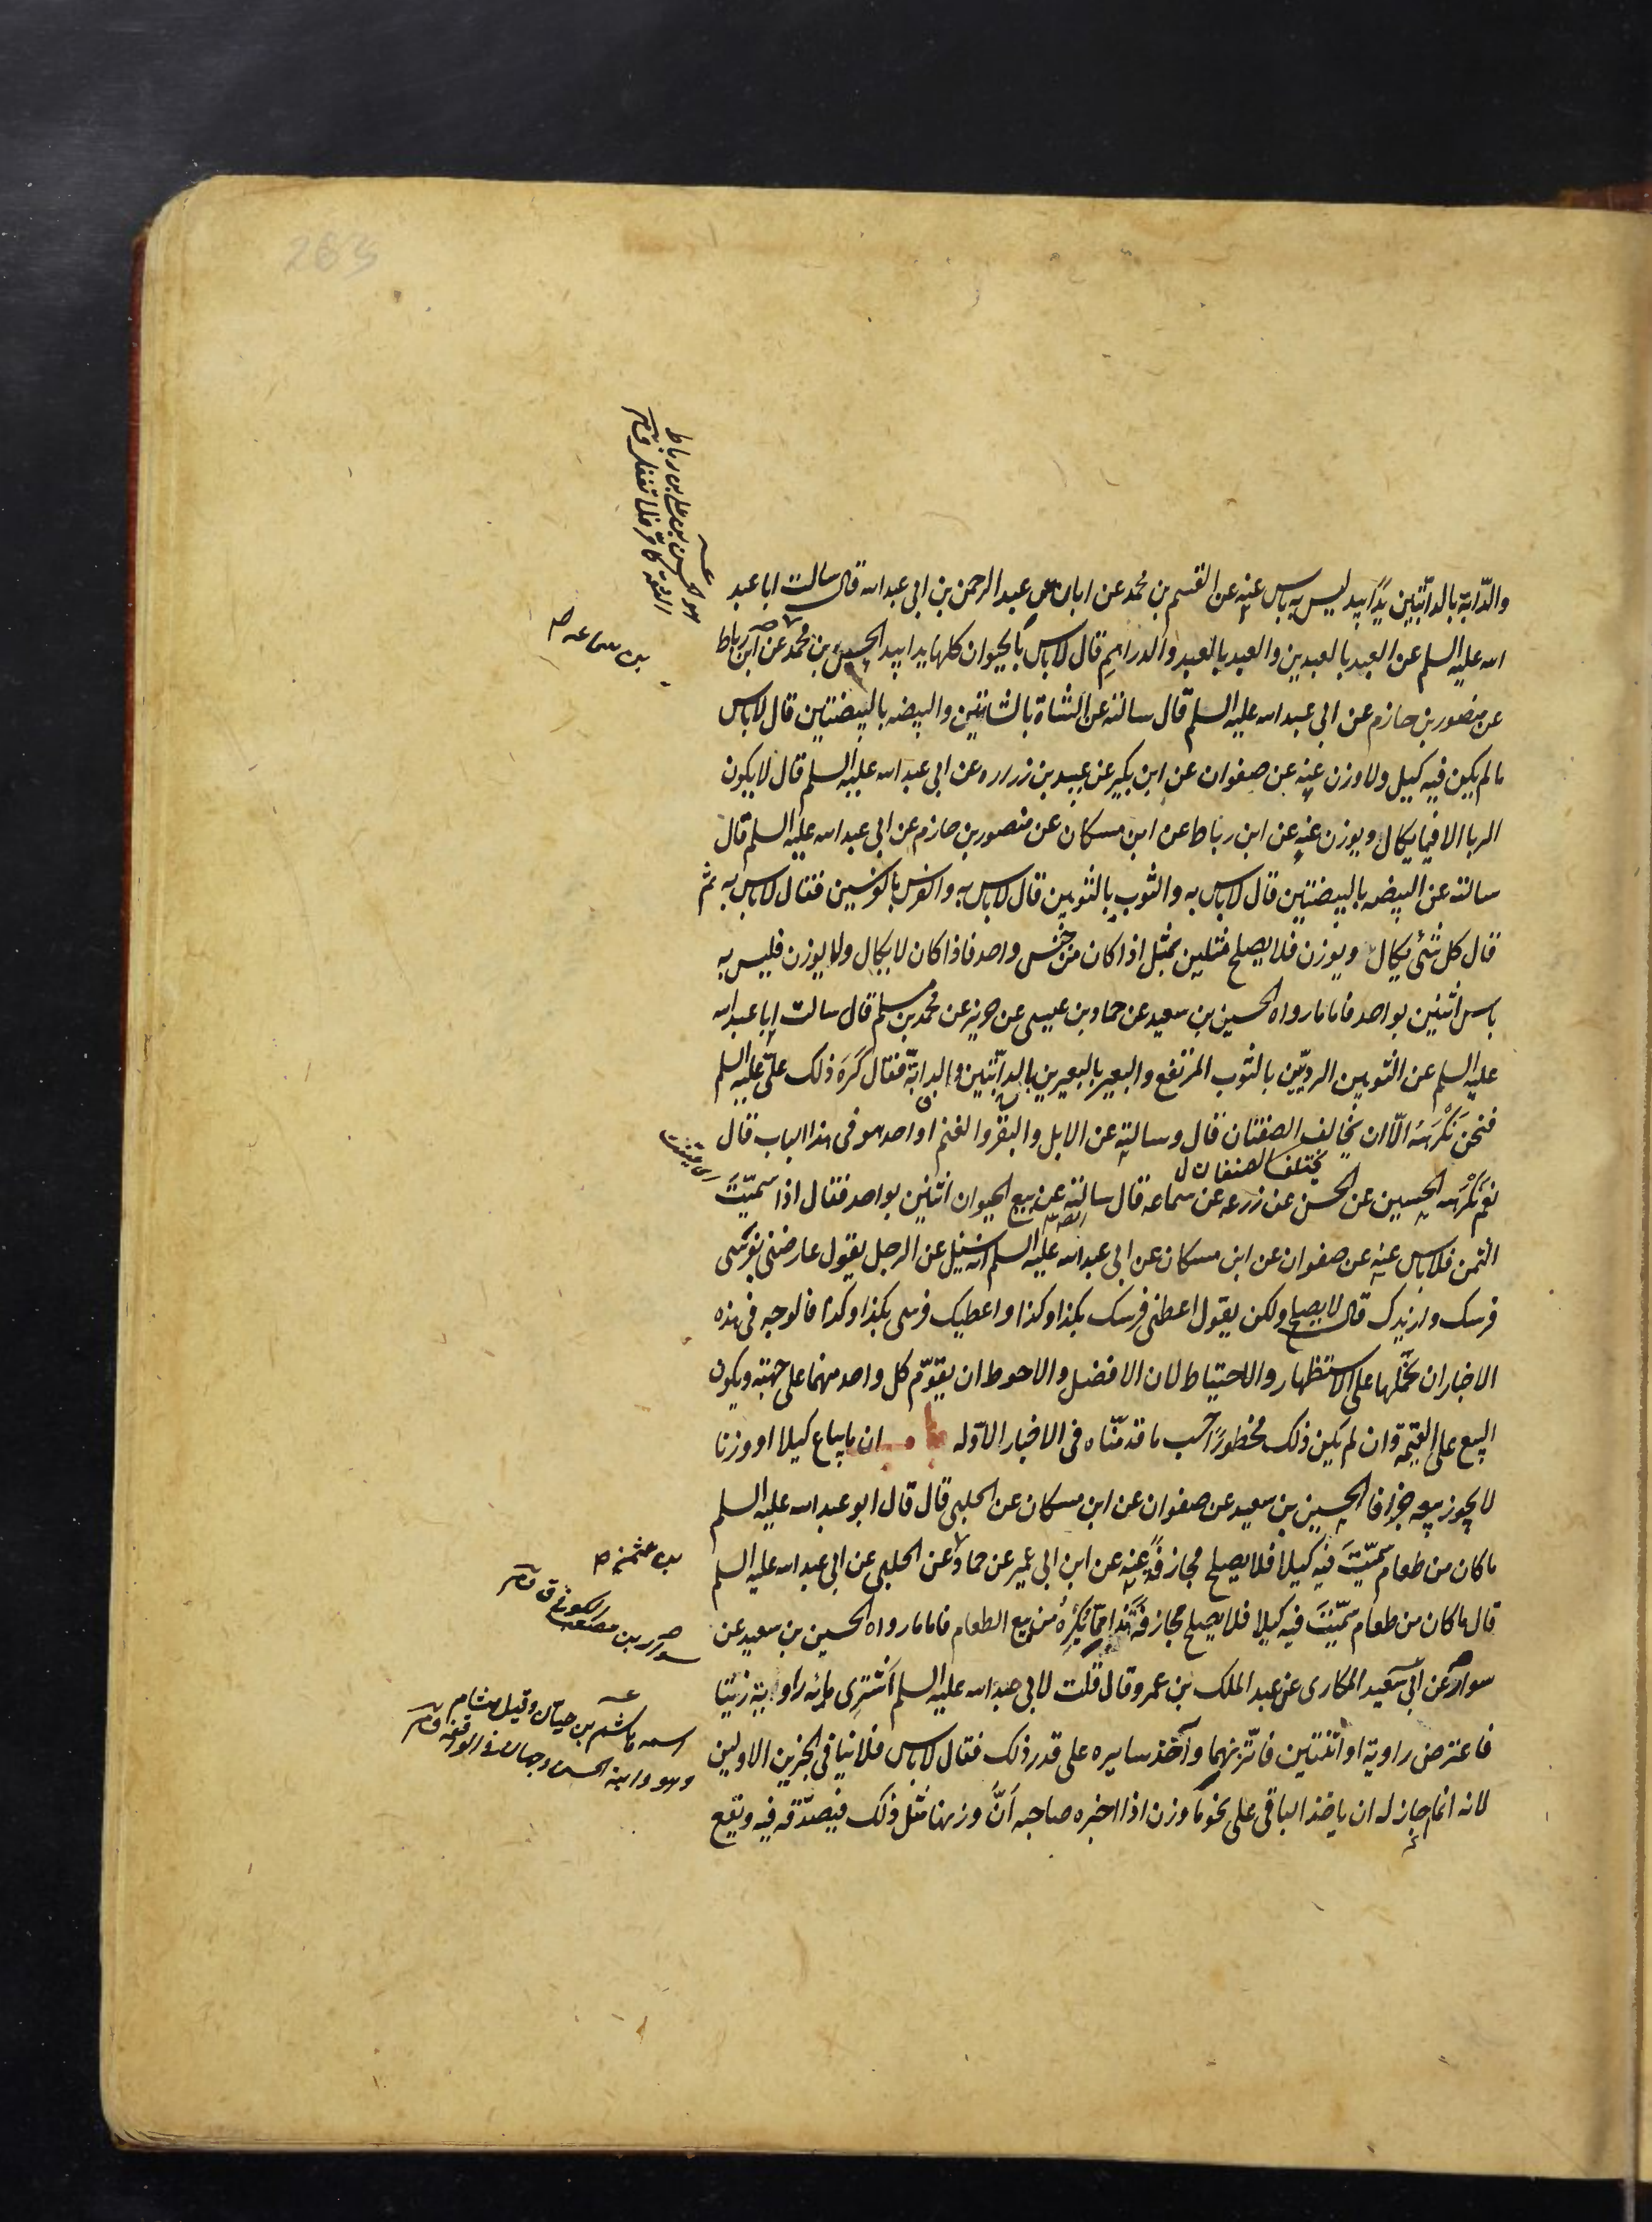 263
والدّابة بالدابّتين يدًا بيد ليس به باس عنه عن القسم بن محمد عن ابان عن عبد الرحمن بن ابى عبد الله قال سالت ابا عبد
الله عليه السلم عن العبد بالعبدين والعبد بالعبد والدراهم قال لاباس بالحيوان كلها يدا بيد الحسن بن محمد عن ابن رباط
عن منصور بن حازم عن ابى عبد الله عليه السلم قال سالته عن الشاة بالشاتين والبيضه بالبيضتين قال لاباس
ما لم يكن فيه كيل ولا وزن عنه عن صفوان عن ابن بكير عن عبيد بن زراره عن ابى عبد الله عليه السلم قال لا يكون
الربا الا فيما يكال ويوزن عنه عن ابن رباط عن ابن مسكان عن منصور بن حازم عن ابى عبد الله عليه السلم قال
سالته عن البيضه بالبيضتين قال لاباس به والثوب بالثوبين قال لاباس به والفرس بالفرسين فقال لاباس به ثم
قال كل شئ يكال ويوزن فلا يصلح مثلين بمثل اذا كان من جنس واحد فاذا كان لا يكال ولا يوزن فليس به
باس اثنين بواحد فاما ما رواه الحسين بن سعيد عن حماد بن عيسى عن حريز عن محمد بن مسلم قال سالت ابا عبد الله
عليه السلم عن الثوبين الرديّين بالثوب المرتفع والبعير بالبعيرين والدابة بالدابّتين فقال كَرَه ذلك علىّ عليه السلم
فنحن نَكْرَهُه الّا ان يخالف الصنفان قال وسالته عن الابل والبقر والغنم او احدهو فى هذا الباب قال
يختلف الصنفان ل
نعم نَكْرَهه الحسين عن الحسن عن زرعه عن سماعه قال سالته عن بيع الحيوان اثنين بواحد فقال اذا سمّيتَ
الثمن فلاباس عنه عن صفوان عن ابن مسكان عن ابى عبد الله عليه السلم انه سئل عن الرجل يقول عارضنى بفرسى
فرسك وازيدك قال لا يصلح ولكن يقول اعطنى فرسك بكذا وكذا واعطيك فرسى بكذا وكذا فالوجه فى هذه
الاخبار ان نحملها على الاستظهار والاحتياط لان الافضل والاحوط ان يقوّم كل واحد منهما على جهته ويكون
البيع على القيمة وان لم يكن ذلك محظورًا حسب ما قدمّناه فى الاخبار الاوّله ان ما يباع كيلا او وزنا
لا يجوز بيعه جزافا الحسين بن سعيد عن صفوان عن ابن مسكان عن الحلبى قال قال ابو عبد الله عليه السلم
ما كان من طعام سمّيتَ فيه كيلا فلا يصلح مجازفةً عنه عن ابن ابى عمير عن حماد عن الحلبى عن ابى عبد الله عليه السلم
قال ما كان من طعام سمّيتَ فيه كيلا فلا يصلح مجازفة هذا مما يُكْرَهُ من بيع الطعام فاما ما رواه الحسين بن سعيد عن
سوار عن ابى سعيد المكارى عن عبد الملك بن عمرو قال قلت لابى عبد الله عليه السلم أشترى مائه راوية زيتا
فاعترض راوية او اثنتين فاتّزنهما وآخذ سايره على قدر ذلك فقال لاباس فلا ينافى الخبرين الاولين
لانه انما جاز له ان ياخذ الباقى على نحو ما وزن اذا اخبره صاحبه اَنَّ وزنها مثل ذلك فيصدّقه فيه ويقع
هو الحسن بن على بن رباط
بن سماعه ص
بن عثمن ص
اسمه هاشم بن حيان وقيل هشام
وهو وابنه الحسن وجهان فى الواقفه